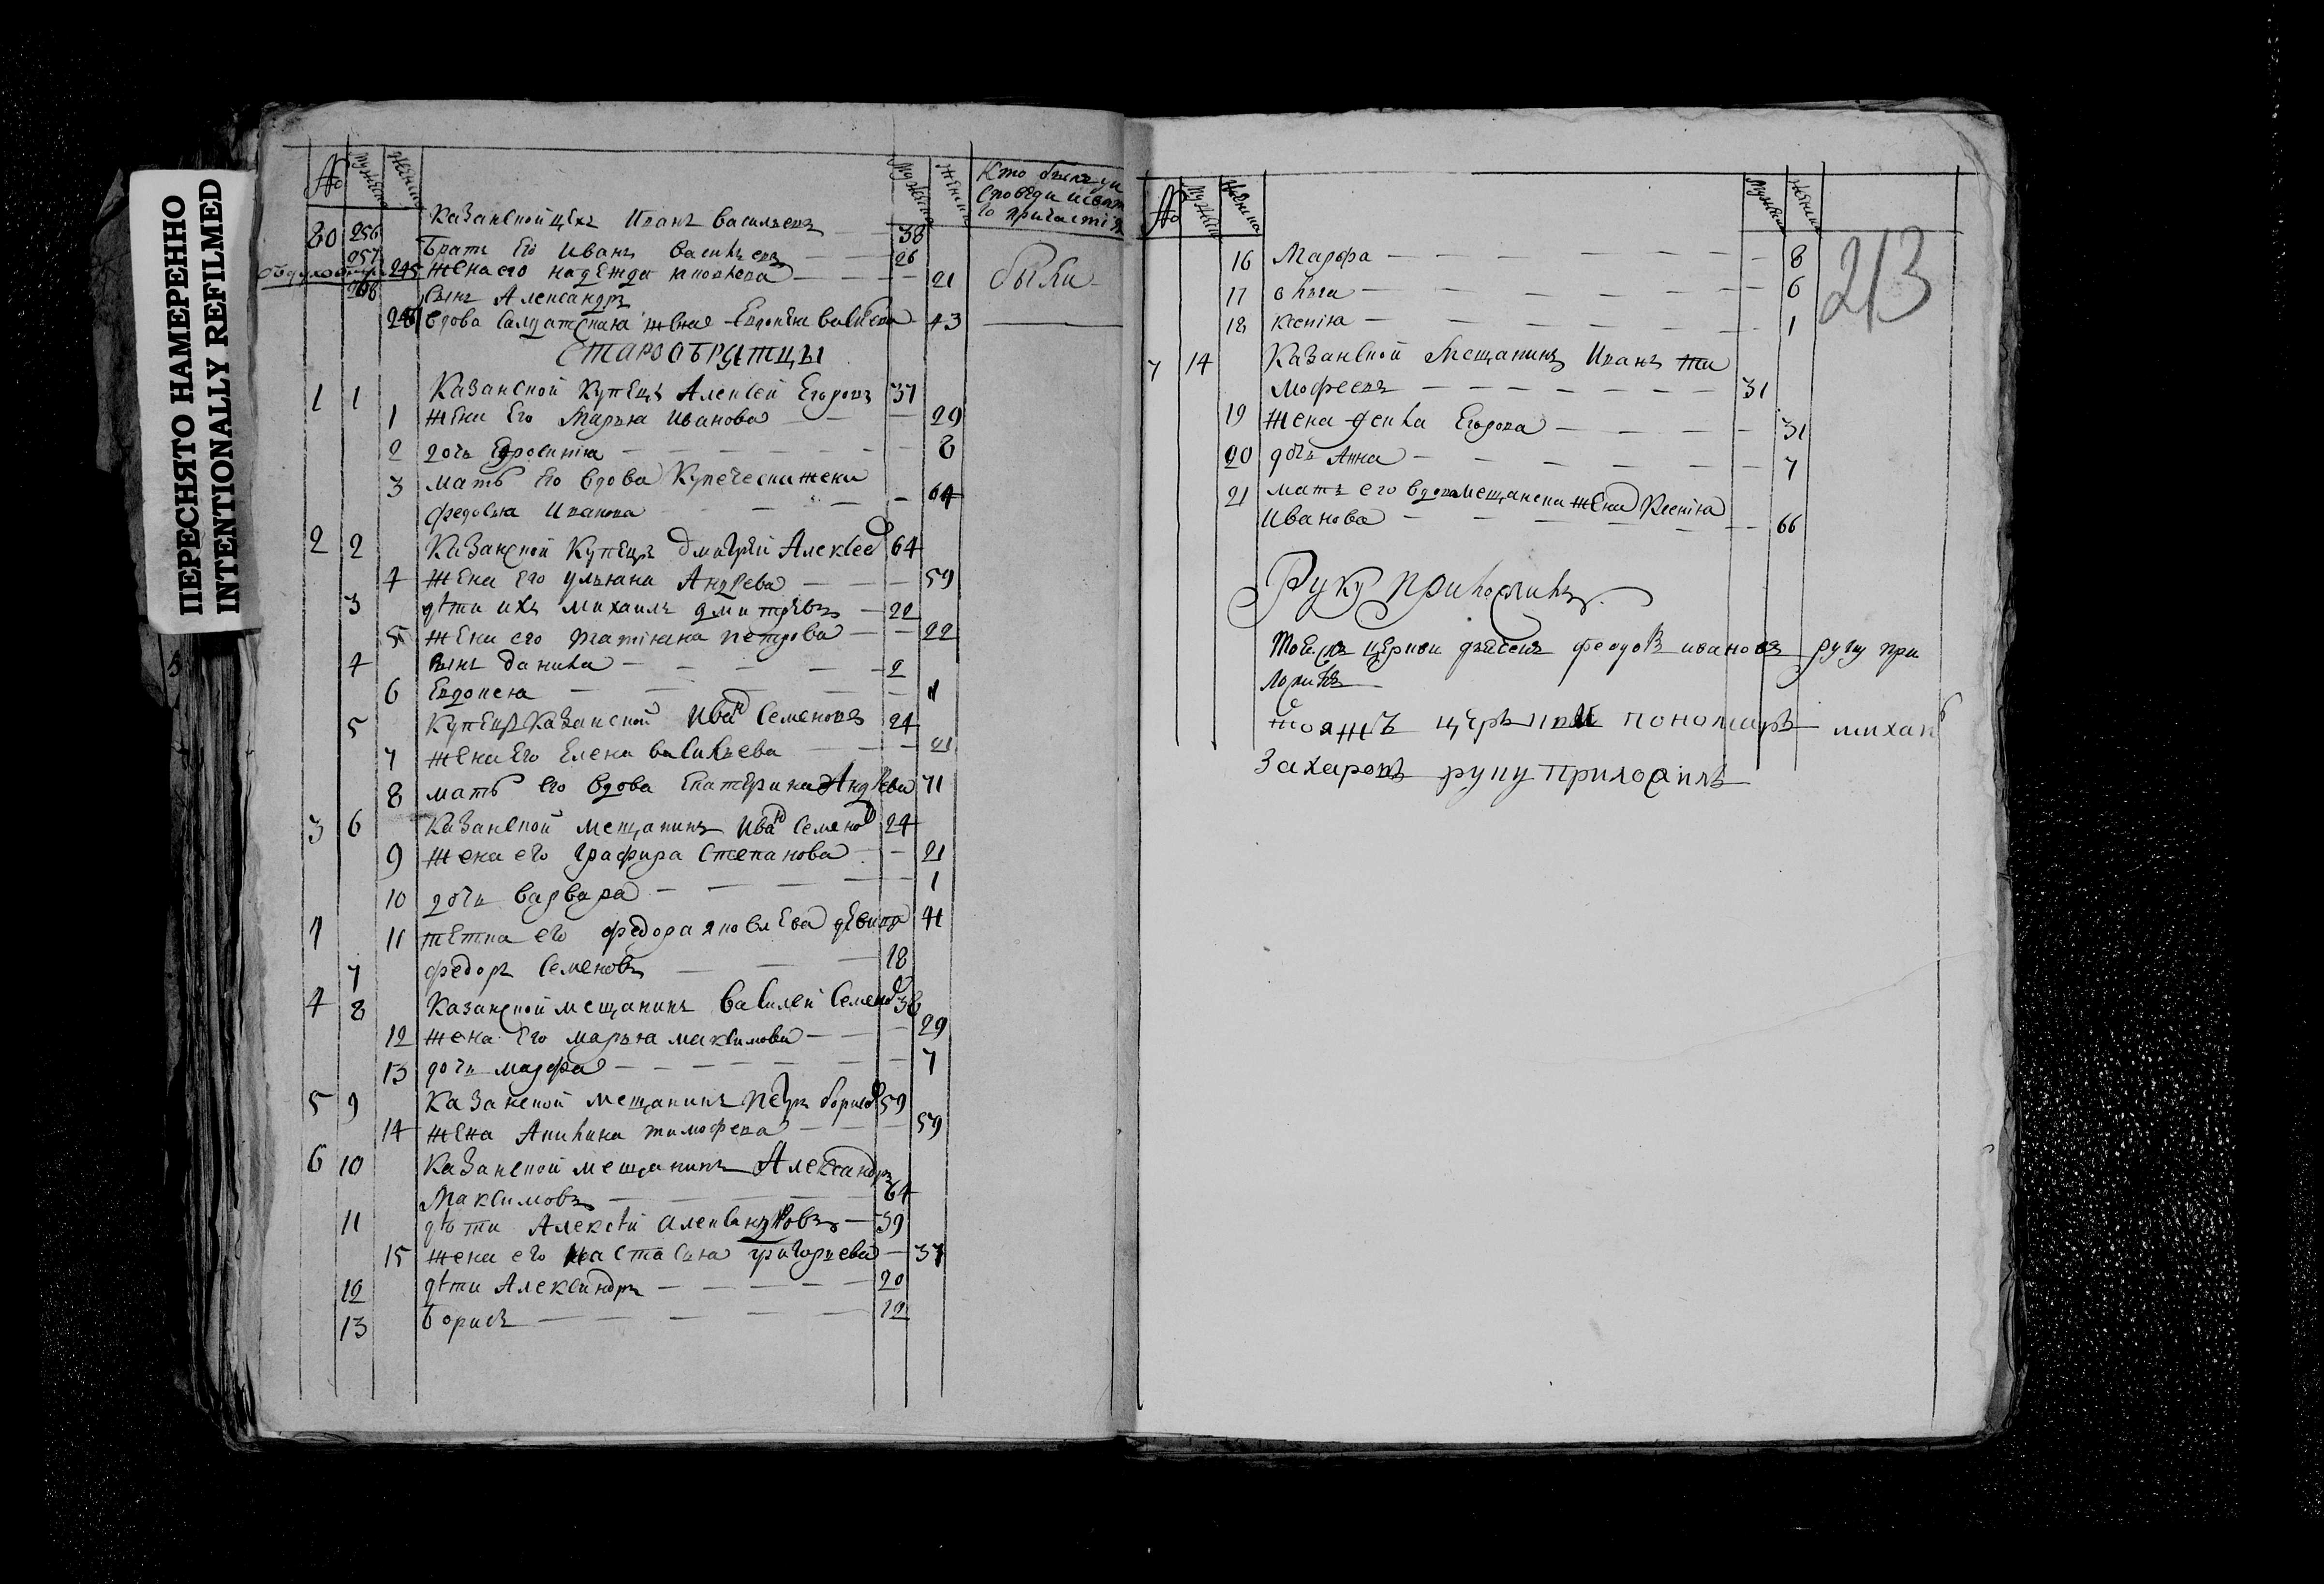 ПЕРЕСНЯТО НАМЕРЕННО
INTENTIONALLY REFILMED
№ мужеска женска мужеска женска Кто былъ у и
споведи и свят
го причастїя
80 256 Казанской цехъ Иванъ Васильевъ 38
257 Братъ Его Иванъ Васильевъ 26
245 жена его надежда 21 были
258 Сынъ Александръ
246 вдова Салдатская жена Евдокия 43
СТАРООБРЯТЦЫ
1 1 Казанской Купецъ Алексей Егоровъ 37
1 жена Его Марья Иванова 29
2 дочь Ефросинїя 8
3 мать Его вдова Купеческа жена
Федосья Иванова 64
2 2 Казанской Купецъ Дмитрей Алексеев 64
4 жена Его ульяна Андрева 59
3 дѣти ихъ михаилъ дмитревъ 22
5 жена его татїяна петрова 22
4 сынъ данила 2
6 Евдокея 1
5 Купецъ Казанской Иван Семеновъ 24
7 жена Его Елена васильева 21
8 мать его вдова Екатерина Андреева 71
3 6 Казанской мещанинъ Иван Семенов 24
9 жена его Графира Степанова 21
10 дочь варвара 1
11 тетка его федора яковлева девица 41
7 федоръ Семеновъ 18
4 8 Казанской мещанинъ Василей Семенов 36
12 жена Его марья максимова 29
13 дочь марфа 7
5 9 Казанской мещанинъ петръ борисов 59
14 жена Акилина тимофева 59
6 10 Казанской мещанинъ Александръ
Максимовъ 64
11 дѣти Алексѣй александровъ 39
15 жена его настасья григорьева 37
12 дѣти Александръ 20
13 Борисъ 12
№ мужеска женска мужеска женска
213
16 Марфа 8
17 олга 6
18 Ксенїя 1
7 14 Казанской Мещанинъ Иванъ ти
мофеевъ 31
19 жена фекла Егорова 31
20 дочь Анна 7
21 мать его вдова мещанска жена Ксенїя
Иванова 66
Руку приложилъ
тоей церкви феодоръ ивановъ руку при
ложилъ
тояжъ церкви пономарь михаил
Захаровъ руку приложилъ